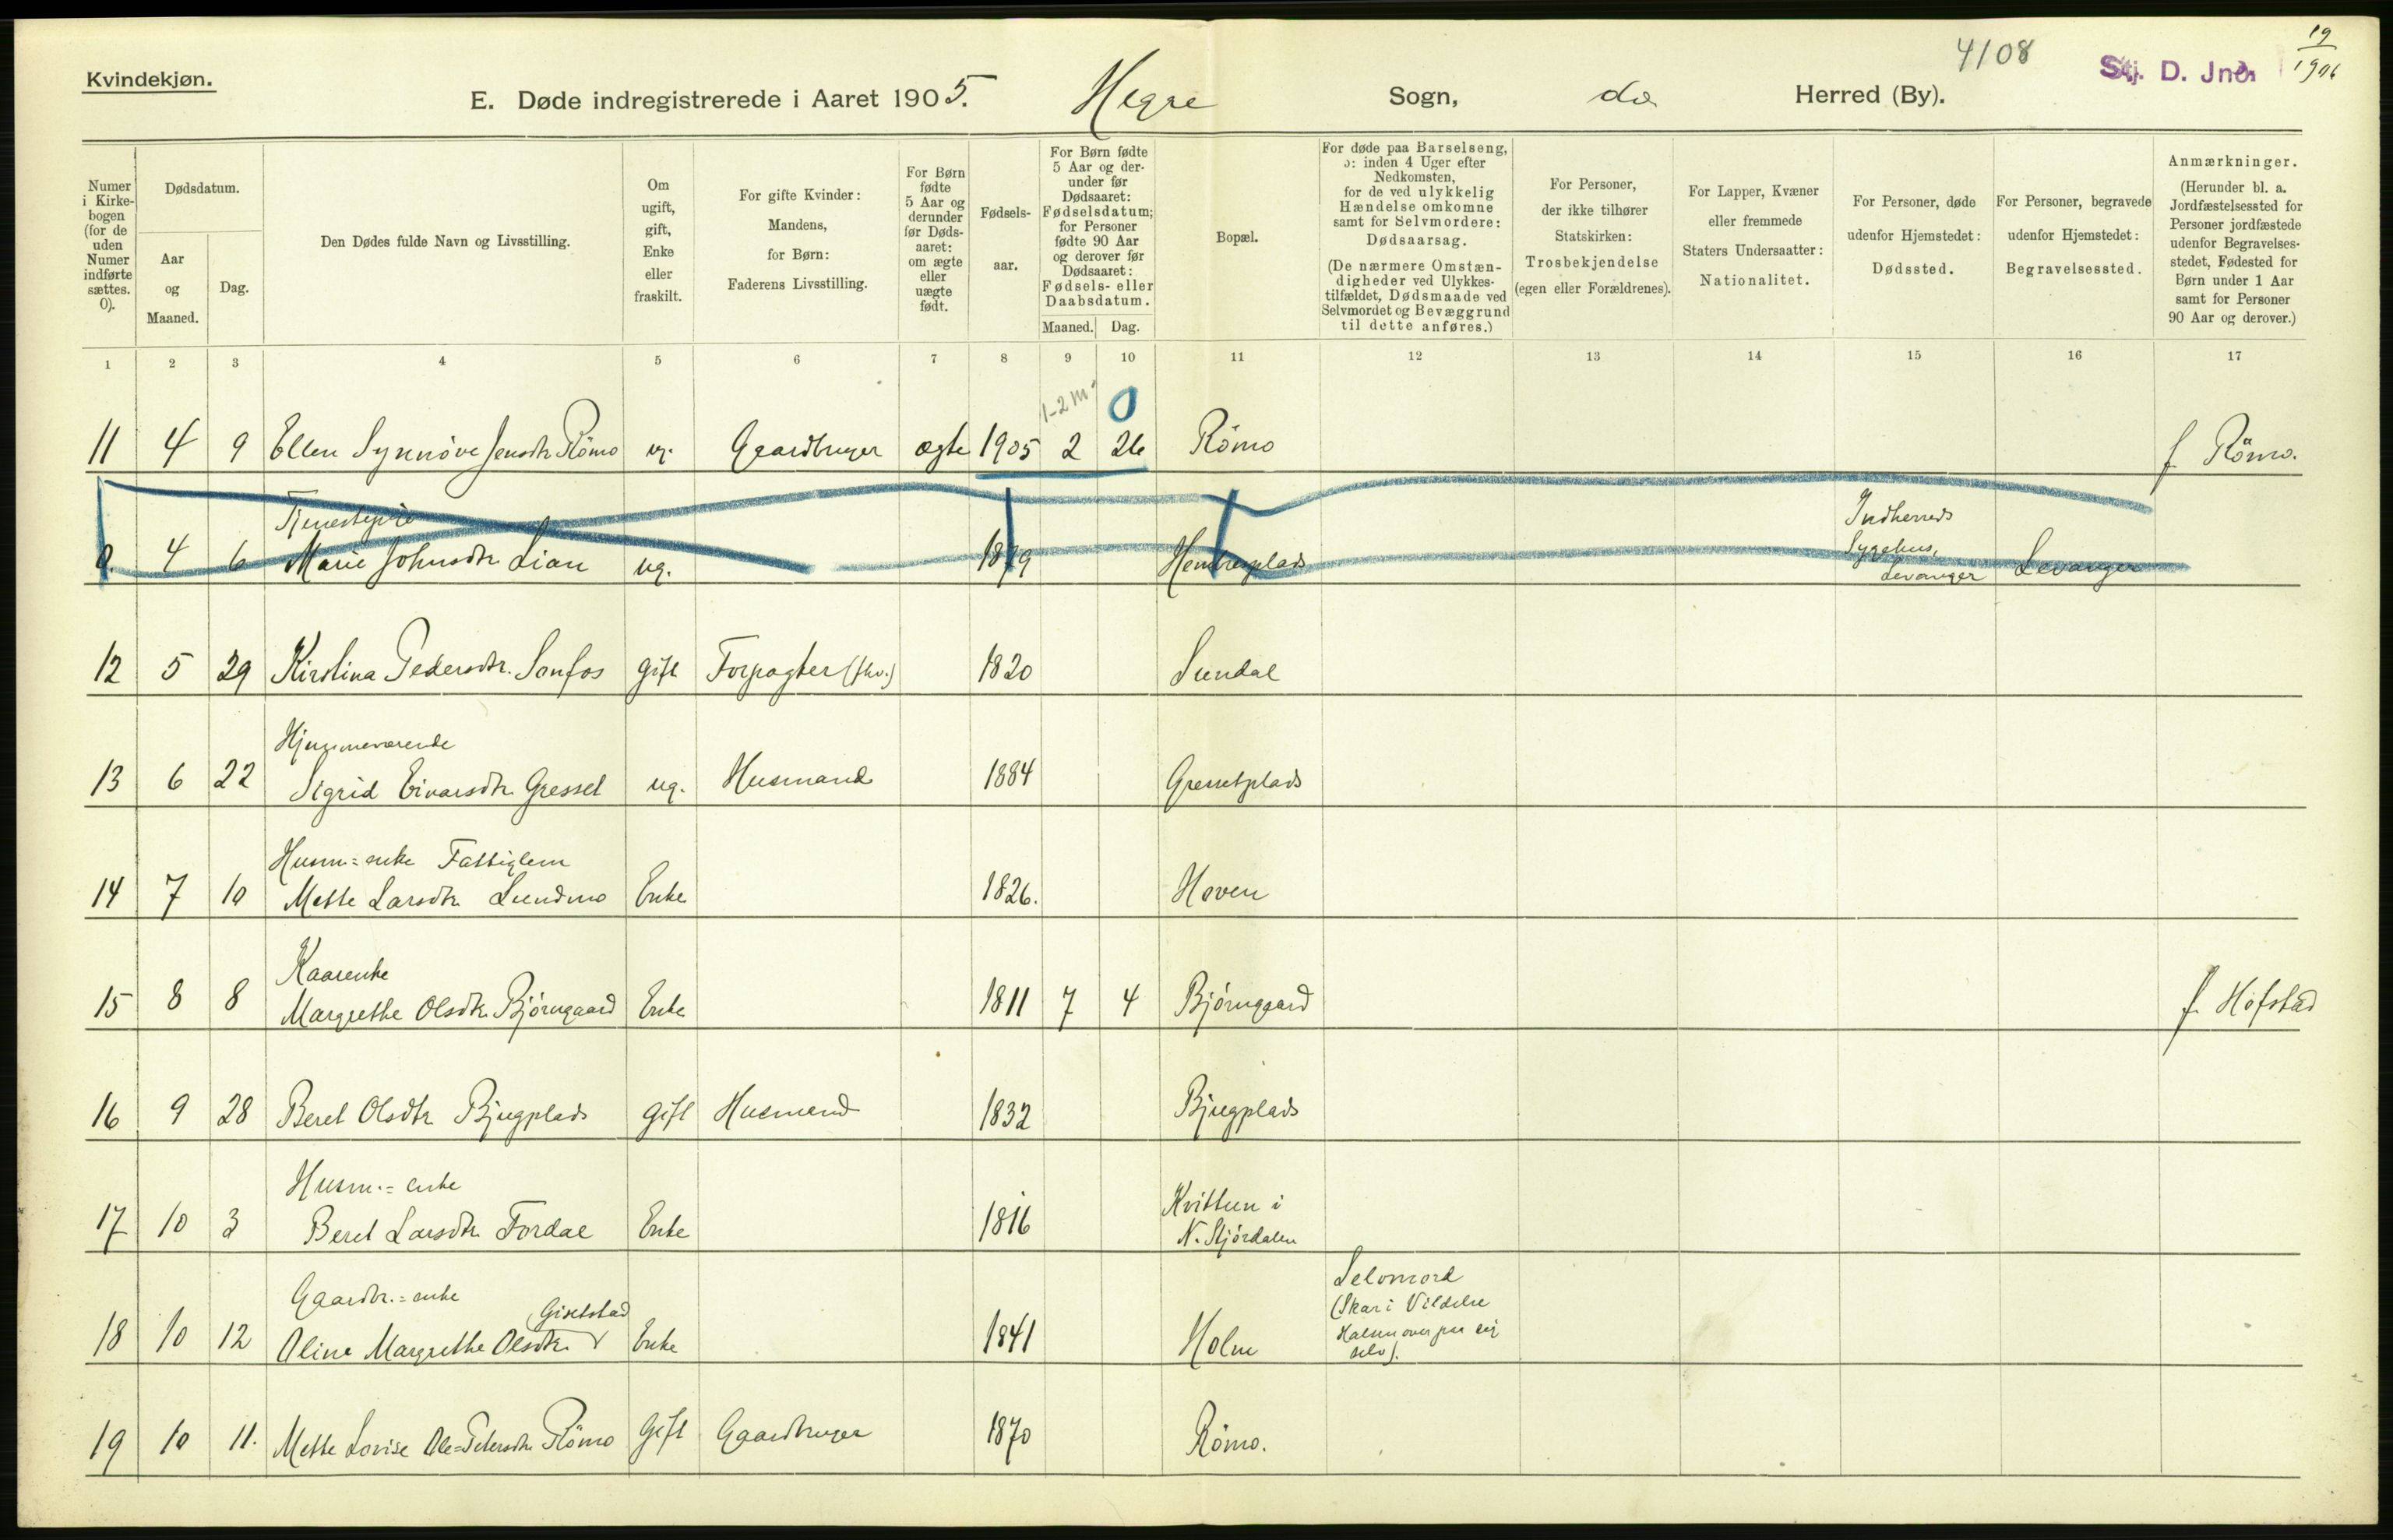 Kvindekjøn.
4108
Stj. D. Jno.
19
1906
E. Døde indregistrerede i Aaret 1905. Hegre Sogn, do Herred (By).
Numer i Kirkebogen (for de uden Numer indførte sættes. 0).
Dødsdatum.
Aar og Maaned.
Dag.
Den Dødes fulde Navn og Livsstilling.
Om ugift, gift, Enke eller fraskilt.
For gifte Kvinder: Mandens, for Børn: Faderens Livsstilling.
For Børn fødte 5 Aar og derunder før Dødsaaret: om ægte eller uægte født.
Fødselsaar.
For Børn fødte 5 Aar og derunder før Dødsaaret: Fødselsdatum; for Personer fødte 90 Aar og derover før Dødsaaret: Fødsels- eller Daabsdatum.
Maaned. Dag.
Bopæl.
For døde paa Barselseng, ɔ: inden 4 Uger efter Nedkomsten, for de ved ulykkelig Hændelse omkomne samt for Selvmordere: Dødsaarsag. (De nærmere Omstændigheder ved Ulykkestilfældet, Dødsmaade ved Selvmordet og Bevæggrund til dette anføres.)
For Personer, der ikke tilhører Statskirken: Trosbekjendelse (egen eller Forældrenes).
For Lapper, Kvæner eller fremmede Staters Undersaatter: Nationalitet.
For Personer, døde udenfor Hjemstedet: Dødssted.
For Personer, begravede udenfor Hjemstedet: Begravelsessted.
Anmærkninger. (Herunder bl. a. Jordfæstelsessted for Personer jordfæstede udenfor Begravelsesstedet, Fødested for Børn under 1 Aar samt for Personer 90 Aar og derover.)
1 2 3 4 5 6 7 8 9 10 11 12 13 14 15 16 17
1-2 m 0
11 4 9 Ellen Synnöve Jensdtr. Römo ug. Gaardbruger ægte 1905 2 26 Römo f Römo.
Tjenestepige Indherreds
0. 4 6 Marie Johnsdtr. Lian ug. 1879 Hembreplads Sygehus, Levanger Levanger
12 5 29 Kirstina Pedersdtr. Sonfos gift Forpagter (fhv.) 1820 Sundal
Hjemmeværende
13 6 22 Sigrid Eivarsdtr. Gresset ug. Husmand 1884 Gressetplads
Husm=enke Fattiglem
14 7 10 Mette Larsdtr. Lundmo Enke 1826. Hoven
Kaarenke
15 8 8 Margrethe Olsdtr. Björngaard Enke 1811 7 4 Björngaard f. Hofstad
16 9 28 Beret Olsdtr Bjugplads gift Husmand 1832 Bjugplads
Husm.=enke Kvittun i
17 10 3 Beret Larsdtr. Fordal Enke 1816 N. Stjördalen
Gaardbr.=enke Selvmord
Gisetstad (Skar i Vildelse
18 10 12 Oline Margrethe Olsdtr. Enke 1841 Holm Halsen over paa sig
selv).
19 10 11. Mette Lovise Ole=Petersdtr. Römo Gift Gaardbruger 1870 Römo.